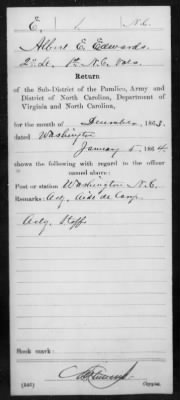 E. 1 N.C.
Albert E. Edwards.
2d Lt. 1st N.C. Vols.
Return
of the Sub-District of the Pamlico, Army and
District of North Carolina, Department of
Virginia and North Carolina,
for the month of December, 1863.
dated Washington
January 5, 1864
shows the following with regard to the officer
named above:
Post or station Washington N.C.
Remarks: Actg. Aide de Camp.
Actg. Staff
Book mark:
(546) Copyist.